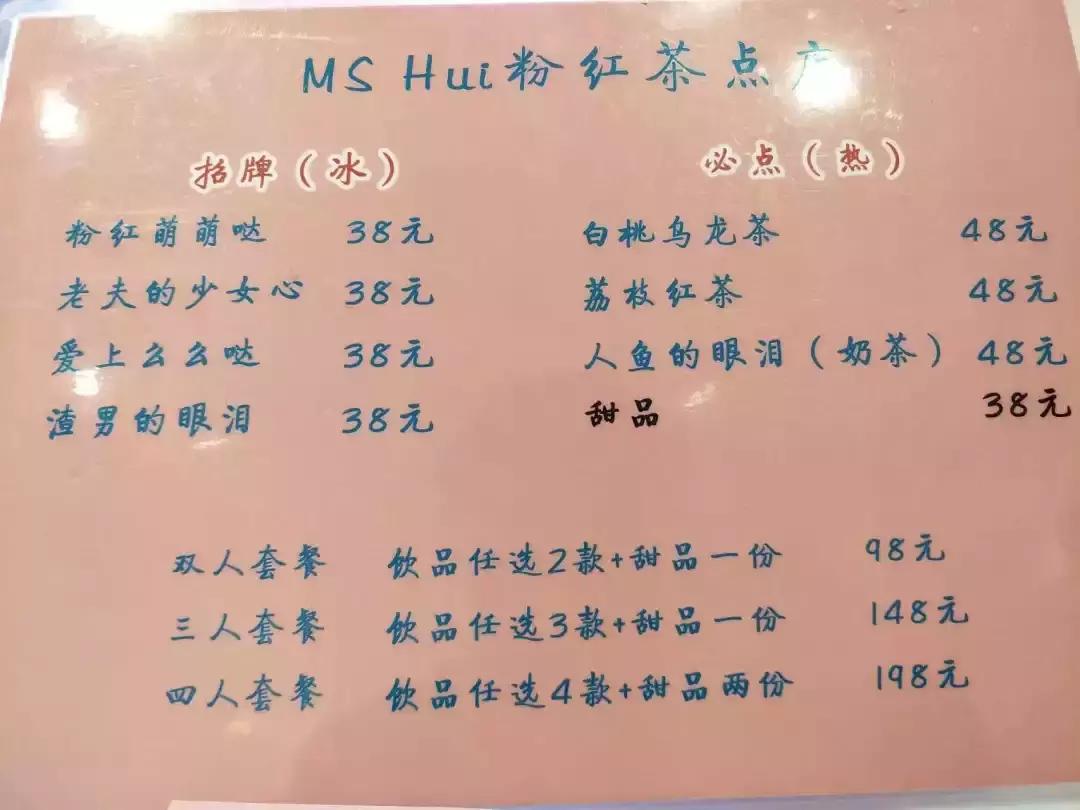 MS Hui粉红茶点广
招牌（冰）
粉红萌萌哒 38元
老夫的少女心 38元
爱上么么哒 38元
渣男的眼泪 38元
必点（热）
白桃乌龙茶 48元
荔枝红茶 48元
人鱼的眼泪（奶茶） 48元
甜品 38元
双人套餐 饮品任选2款+甜品一份 98元
三人套餐 饮品任选3款+甜品一份 148元
四人套餐 饮品任选4款+甜品两份 198元